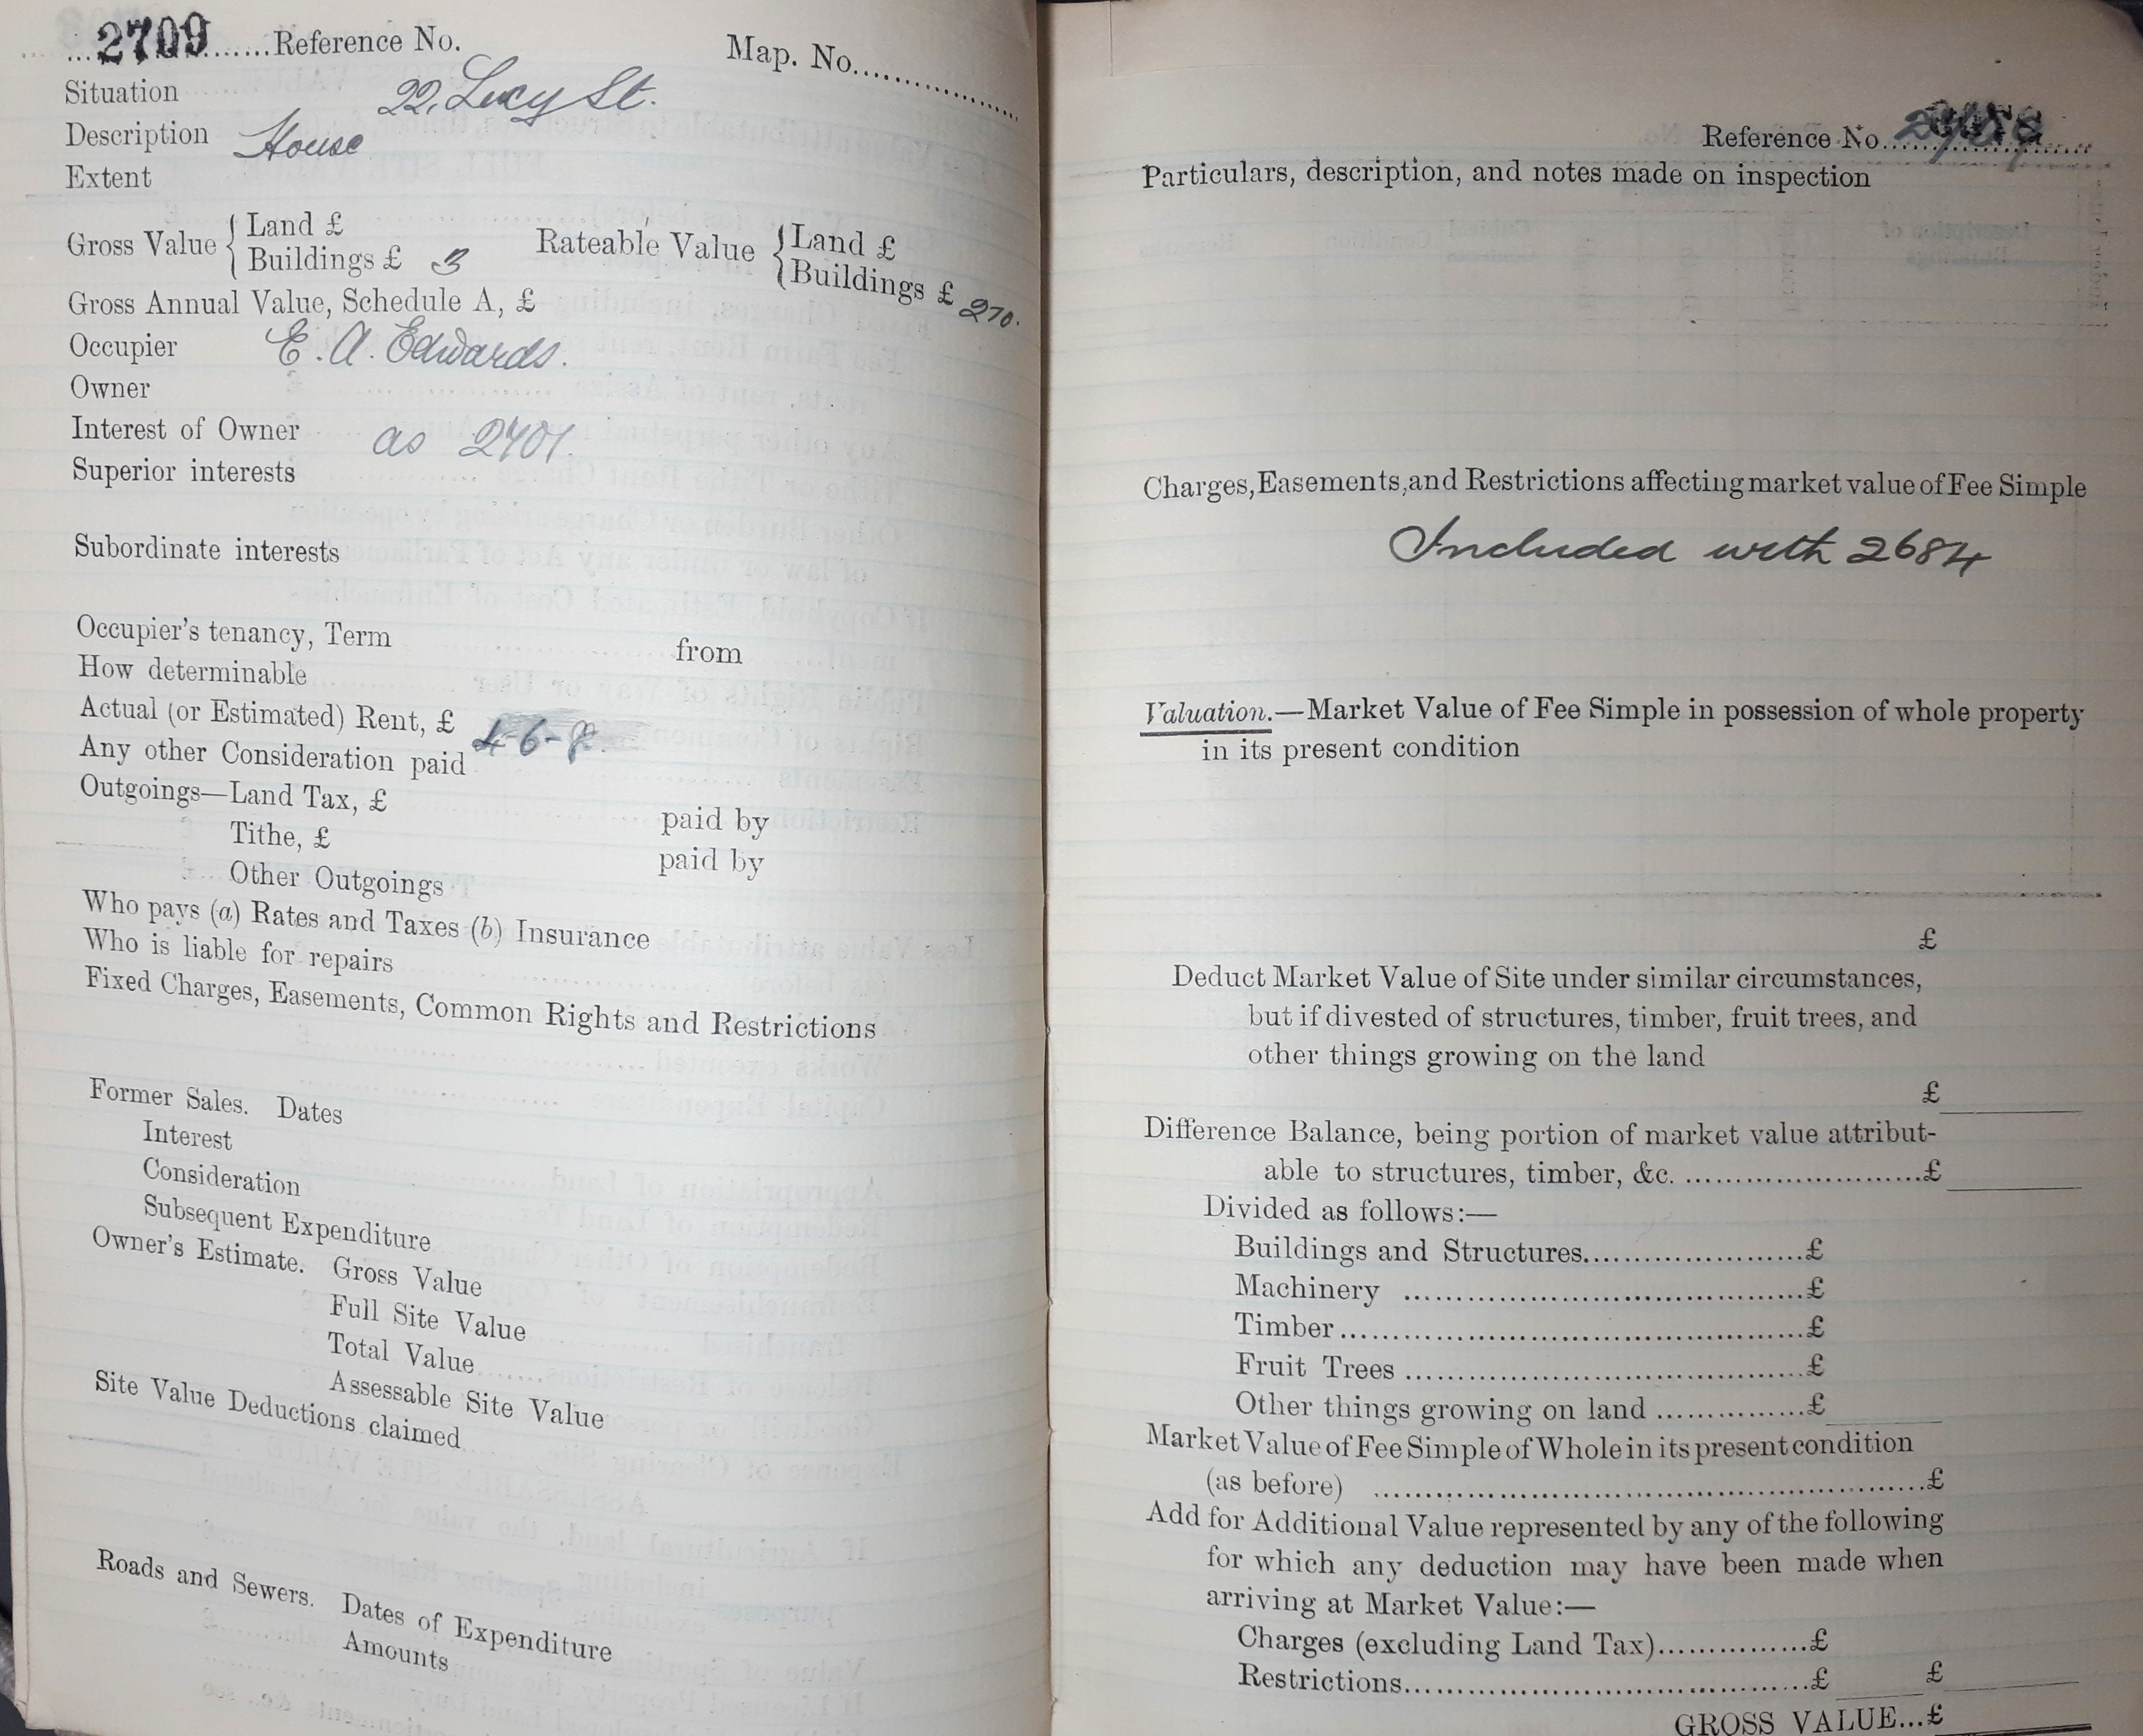 2709 ......Reference No.
Map. No...................
Situation 22, Lucy St.
Description House
Extent
Gross Value { Land £
Buildings £ 3
Rateable Value { Land £
Buildings £ 270.
Gross Annual Value, Schedule A, £
Occupier E. A. Edwards.
Owner
Interest of Owner as 2701.
Superior interests
Subordinate interests
Occupier's tenancy, Term from
How determinable
Actual (or Estimated) Rent, £ 4-6-8.
Any other Consideration paid
Outgoings—Land Tax, £ paid by
Tithe, £ paid by
Other Outgoings
Who pays (a) Rates and Taxes (b) Insurance
Who is liable for repairs
Fixed Charges, Easements, Common Rights and Restrictions
Former Sales. Dates
Interest
Consideration
Subsequent Expenditure
Owner's Estimate. Gross Value
Full Site Value
Total Value
Assessable Site Value
Site Value Deductions claimed
Roads and Sewers. Dates of Expenditure
Amounts
Reference No.
Particulars, description, and notes made on inspection
Charges, Easements, and Restrictions affecting market value of Fee Simple
Included with 2684
Valuation.—Market Value of Fee Simple in possession of whole property
in its present condition
£
Deduct Market Value of Site under similar circumstances,
but if divested of structures, timber, fruit trees, and
other things growing on the land
£
Difference Balance, being portion of market value attribut-
able to structures, timber, &c. ........................£
Divided as follows:—
Buildings and Structures......................£
Machinery ........................................£
Timber..............................................£
Fruit Trees .......................................£
Other things growing on land ...............£
Market Value of Fee Simple of Whole in its present condition
(as before) .......................................................£
Add for Additional Value represented by any of the following
for which any deduction may have been made when
arriving at Market Value:—
Charges (excluding Land Tax)...............£
Restrictions........................................£ £
GROSS VALUE...£